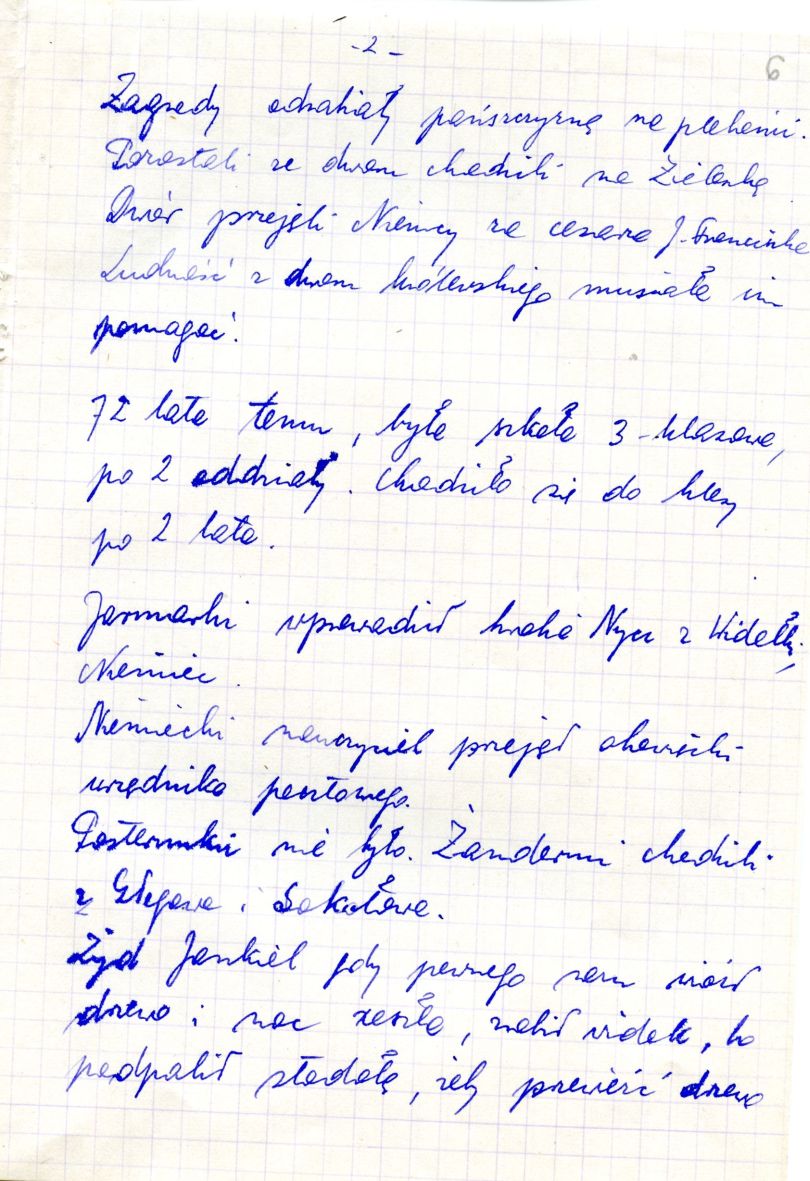 - 2 -
6
Zagrody odrabiały pańszczyznę na plebanii.
Pozostali ze dworu chodzili na Zielonkę
Dwór przejęli Niemcy za cesarza J. Franciszka
Ludność z dworu królewskiego musiała im
pomagać.
72 lata temu, była szkoła 3-klasowa,
po 2 oddziały. Chodziło się do klasy
po 2 lata.
Jarmarki wprowadził hrabia Nycz z Widełki,
Niemiec.
Niemiecki nauczyciel przejął obowiązki
urzędnika pocztowego.
Posterunku nie było. Żandarmi chodzili
z Głogowa i Sokołowa.
Żyd Jankiel gdy pewnego razu wiózł
drzewo i noc zeszła, zrobił widok, bo
podpalił stodołę, żeby przewieźć drzewo